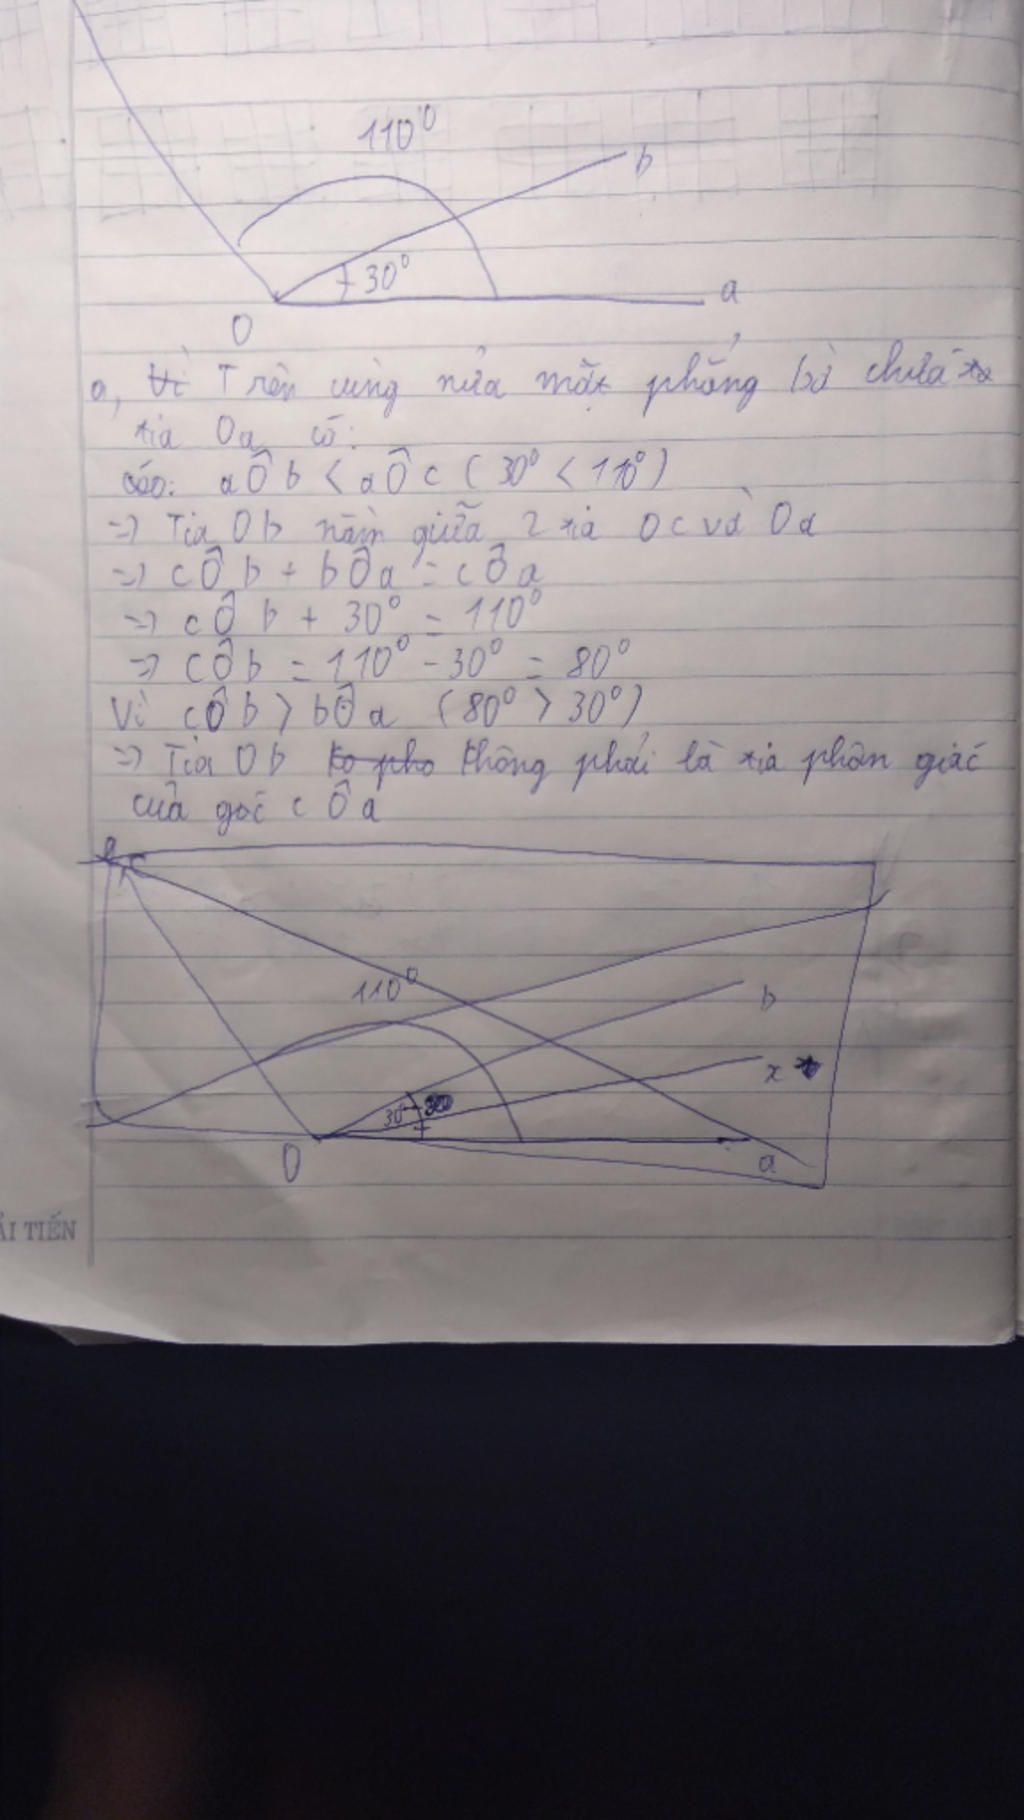 110⁰
b
30⁰
a
O
a, Vì Trên cùng nửa mặt phẳng bờ chứa
tia Oa có:
aÔb < aÔc (30⁰ < 110⁰)
=> Tia Ob nằm giữa 2 tia Oc và Oa
=> cÔb + bÔa = cÔa
=> cÔb + 30⁰ = 110⁰
=> cÔb = 110⁰ - 30⁰ = 80⁰
Vì cÔb > bÔa (80⁰ > 30⁰)
=> Tia Ob ko pho không phải là tia phân giác
của góc cÔa
c
110⁰
b
x
30⁰
O
a
ẢI TIẾN